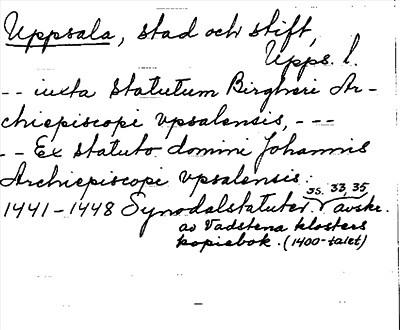 Uppsala, stad och stift,
Upps. l.
-- iuxta statutum Birgheri Ar-
chiepiscopi vpsalensis, ---
-- Ex statuto domini Johannis
Archiepiscopi vpsalensis.
1441-1448 Synodalstatuter. avskr.
ss. 33, 35
av Vadstena klosters
kopiebok. (1400-talet)